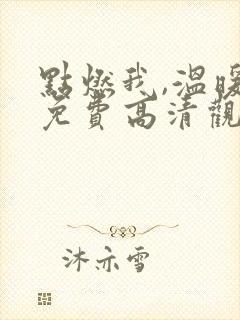 點燃我,溫暖
免費高清觀
沐亦雪